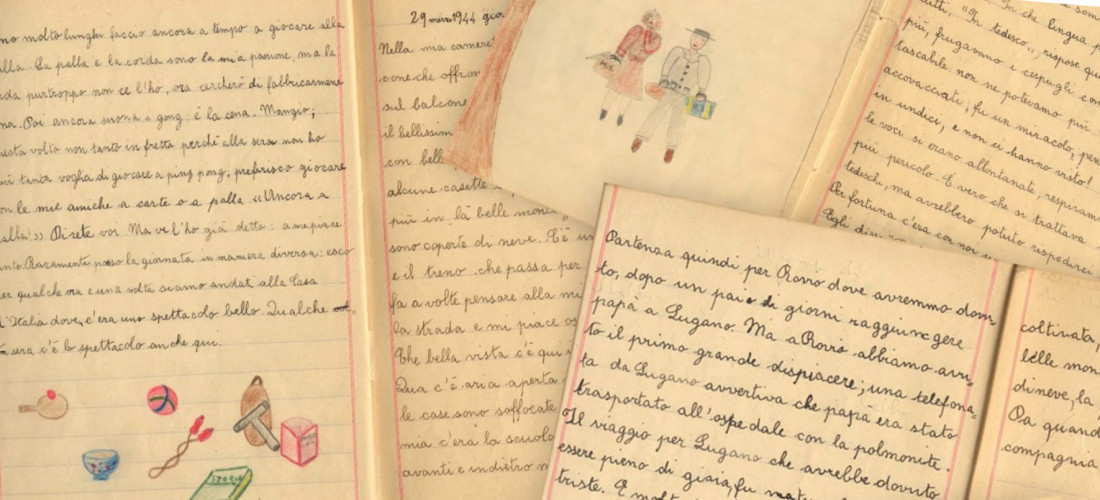 no molto lunghi faccio ancora a tempo a giocare alla
alla. La palla e la corda sono la mia passione, ma la
da purtroppo non ce l'ho, ora cercherò di fabbricarmene
na. Poi ancora suona gong è la cena. Mangio;
uesta volta non tanto in fretta perchè alla sera non ho
tanta voglia di giocare a ping pong; preferisco giocare
on le mie amiche a carte o a palla «Ancora a
alla!» Direte voi. Ma ve l'ho già detto: a me piace
anto. Raramente passo la giornata in maniera diversa: esco
er qualche ora e una volta siamo andati alla Casa
d'Italia dove c'era uno spettacolo bello. Qualche
sera c'è lo spettacolo anche qui.
STORIA
29 marzo 1944 gior
Nella mia camere
cone che offron
sul balcone
il bellissim
con bell
alcune casette
più in là belle mont
sono coperte di neve. C'è un
e il treno che passa per
fa a volte pensare alla mi
la strada e mi piace os
Che bella vista c'è qui
Qua c'è aria aperta
le case sono soffocate
mia c'era la scuola
avanti e indietro n
In che lingua p
tutti, "In tedesco", rispose que
più, frugavano i cespugli con
tascabile non ne potevamo più
accovacciati, fu un miracolo, pen
in undici, e non ci hanno visto!
le voci si erano allontanate, respiram
più pericolo. E vero che si trattava
tedeschi, ma avrebbero potuto rispedirci
Per fortuna c'era con noi u
Egli
Partenza quindi per Rovio dove avremmo dovu
to, dopo un paio di giorni raggiungere
papà a Lugano. Ma a Rovio abbiamo avu
to il primo grande dispiacere; una telefona
ta da Lugano avvertiva che papà era stato
trasportato all'ospedale con la polmonite.
Il viaggio per Lugano che avrebbe dovuto
essere pieno di gioia, fu
triste. E molt
coltivata,
belle mon
di neve, la
Da quand
compagnia